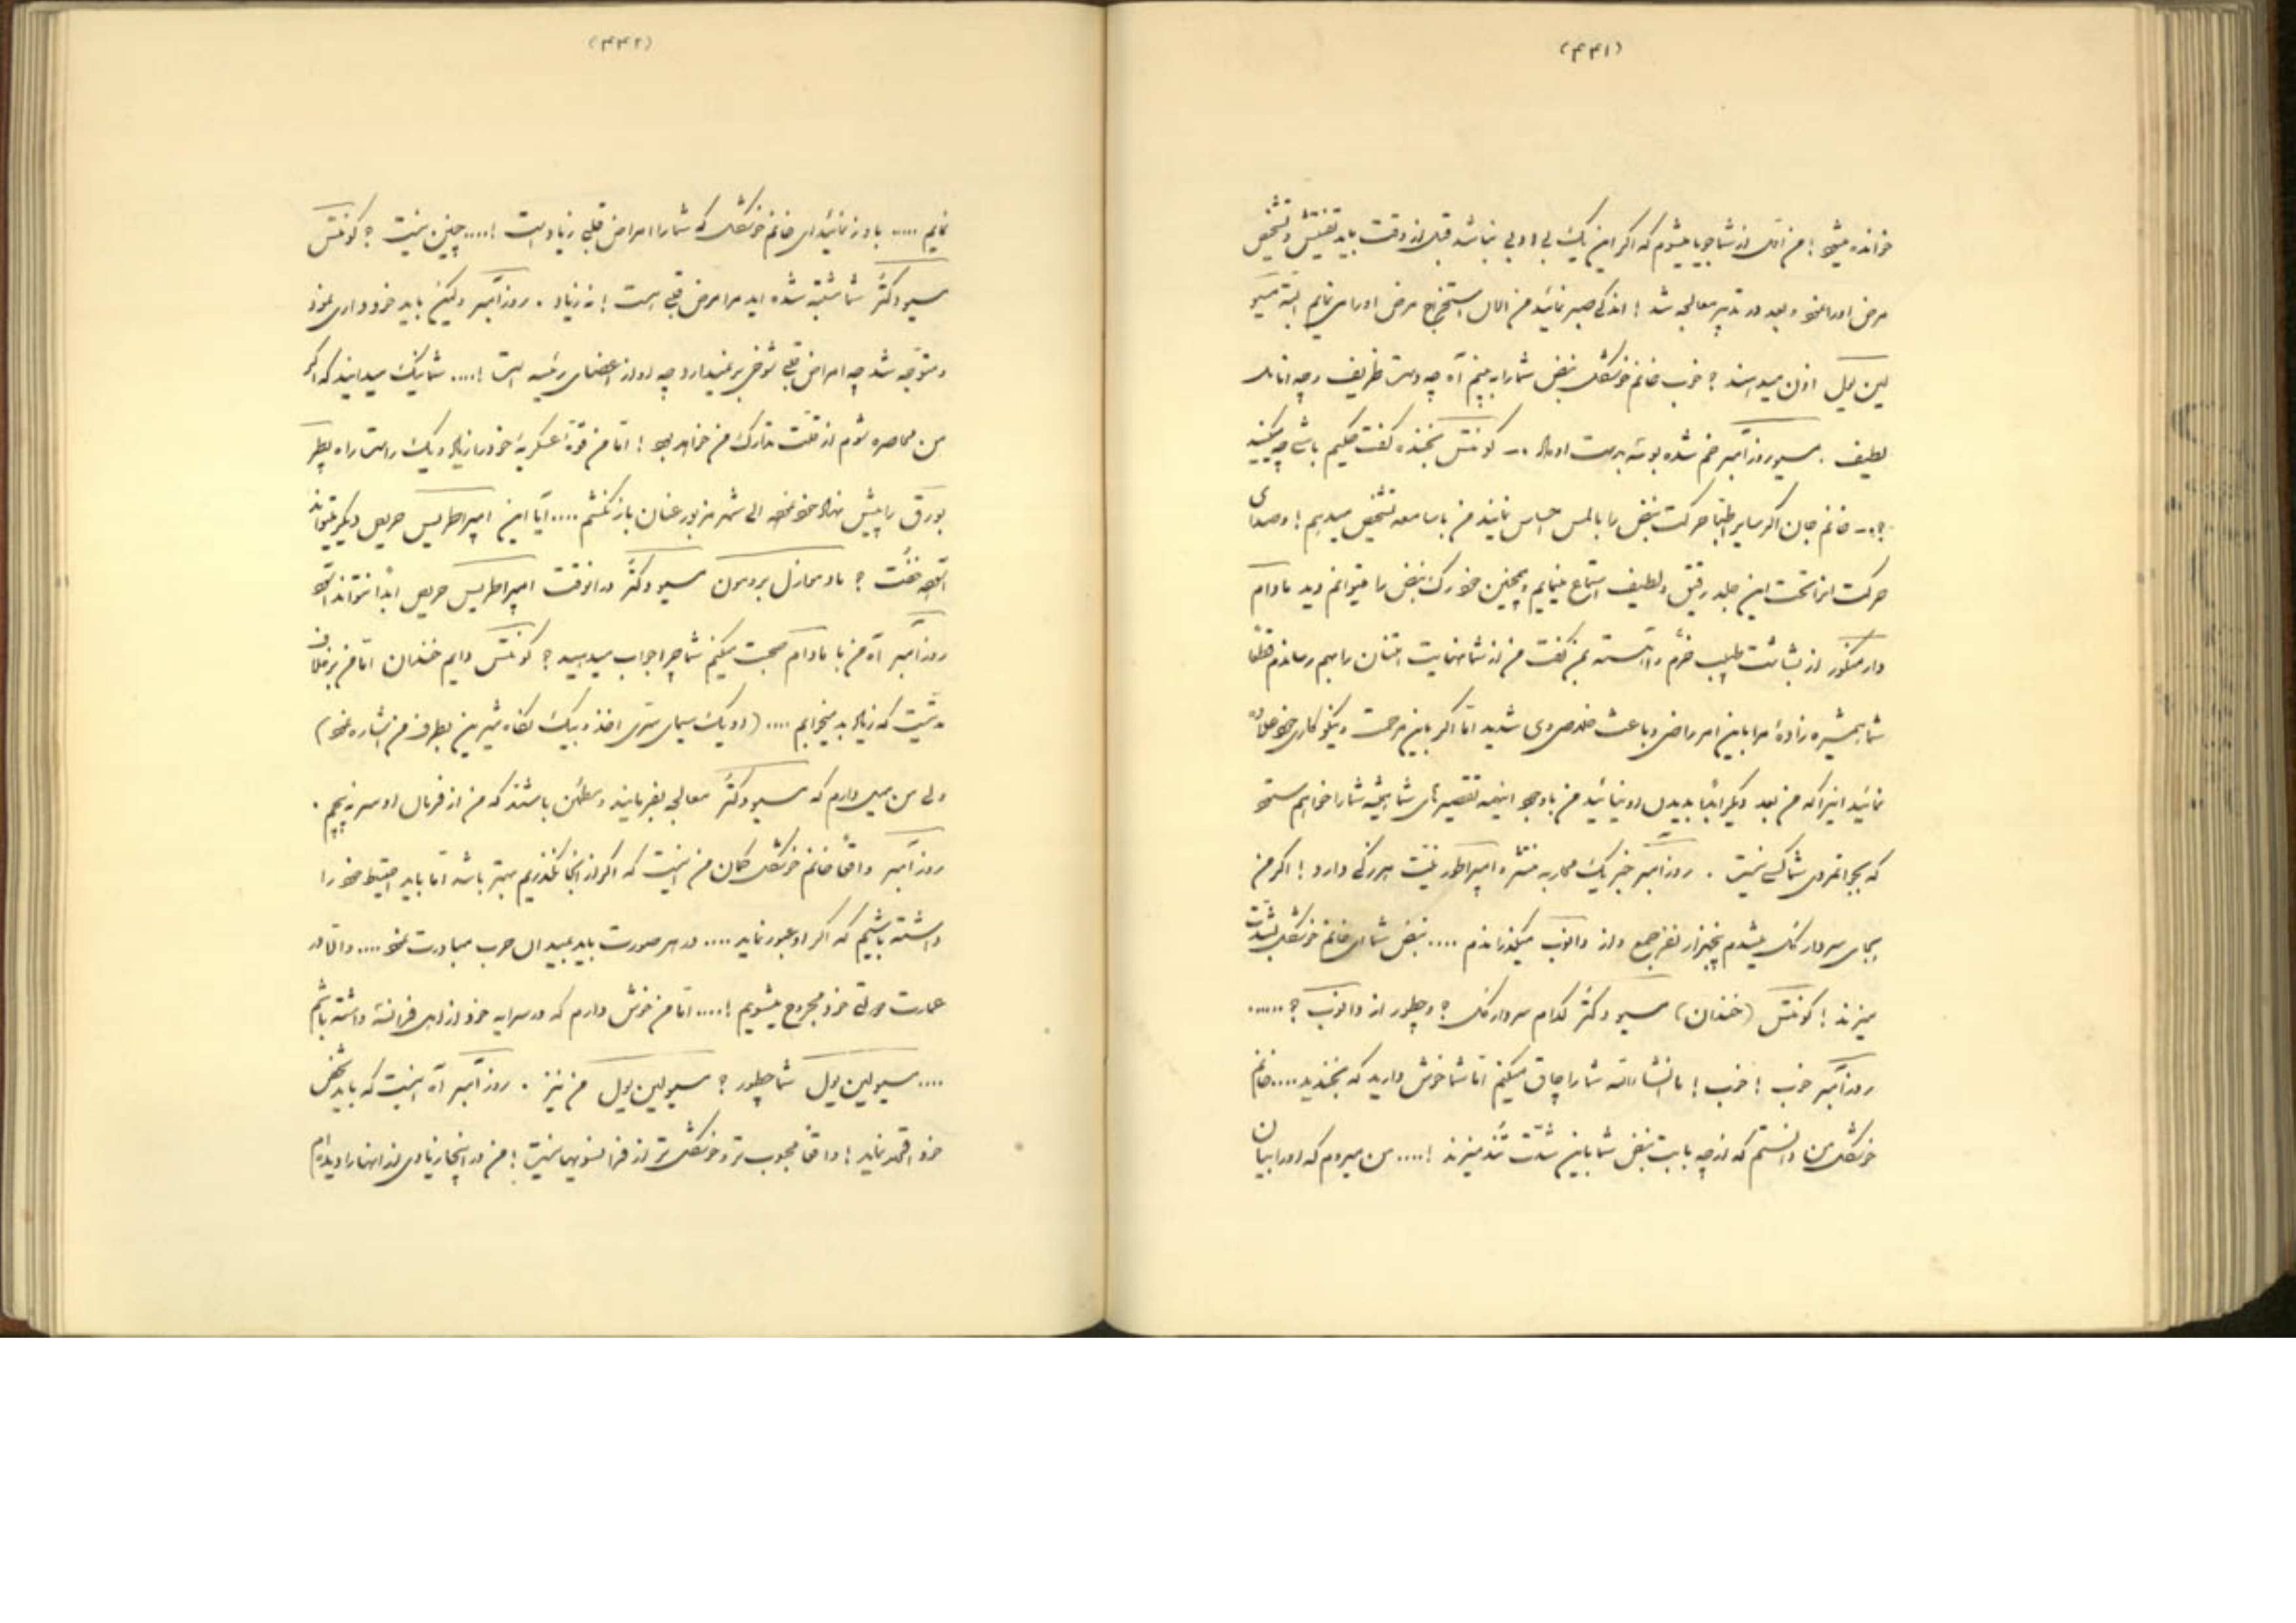 (۴۴۱)
خوانده میشود ! من اول از شما جویا میشوم که اگر این یک بی ادبی نباشد قبل از وقت باید تفتیش و تشخیص
مرض او را نمود و بعد در تدبیر معالجه شد ! اندکی صبر نمائید من الان استخراج مرض او را می نمایم البته مسیو
لین یول اذن میدهند ؟ خوب خانم خوشگل نبض شما را ببینم آه چه دست ظریف و چه انامل
لطیف . مسیو روزآمبر خم شده بوسه بدست او داد .– کونتس بخنده گفت حکیم باشی چه میکنید
؟.– خانم جان اگر سایر اطبا حرکت نبض را با لمس احساس نمایند من با سامعه تشخیص میدهم ! و صدای
حرکت انرا تحت این جلد رقیق و لطیف استماع مینمایم و همچنین خود رگ نبض را میتوانم دید مادام
دارمنکور از بشاشت طبیب خرم و آهسته بمن گفت من از شما نهایت امتنان را بهم رساندم قطعا
شما همشیره زادهٔ مرا باین امر راضی و باعث خلاصی وی شدید اما اگر باین مرحمت و نیکوکاری خود علاوه
نمائید اینرا که من بعد دیگر ابداً بدیدن او نیائید من با وجود اینهمه تقصیرهای شما همیشه شما را خواهم ستود
که بجوانمردی شما کسی نیست . روزآمبر خبر یک محاربه منتشره امپراطور نیت بزرگی دارد ! اگر من
بجای سردار کل میشدم پنجهزار نفر جمع و از دانوب میگذراندم .... نبض شما ای خانم خوشگل بشدت
میزند ! کونتس (خندان) مسیو دکتر کدام سردار کل ؟ و چطور از دانوب ؟ ......
روزآمبر خوب ! خوب ! ما انشاءالله شما را چاق میکنیم اما شما خوش دارید که بخندید .... خانم
خوشگل من دانستم که از چه بابت نبض شما باین شدت تند میزند !.... من میروم که او را بیان
(۴۴۲)
نمایم ..... باور نمائید ای خانم خوشگل که شما را امراض قلبی زیاد است !.... چنین نیست ؟ کونتس
مسیو دکتر شما مشتبه شده اید مرا مرض قلبی هست ! نه زیاد . روزآمبر ولیکن باید خودداری نمود
و متوجه شد چه امراض قلبی شوخی بر نمیدارد چه او از اعضای رئیسه است !.... شما نیک میدانید که اگر
من محاصره شوم از قلت تدارک من خواهد بود ! اما من قوهٔ عسکریهٔ خود را زیاد و یک راست راه پطر
بورق را پیش نهاد خود نموده الی شهر مزبور عنان باز نکشم .... آیا این امپراطریس حریص دیگر میتواند
آسوده خفت ؟ مادموازل بردمون مسیو دکتر در انوقت امپراطریس حریص ابداً نتواند آسود
روزآمبر آه من با مادام صحبت میکنم شما چرا جواب میدهید ؟ کونتس دایم خندان اما من بر خلاف
مدتیست که زیاد بد میخوابم .... (او یک سیمای متری اخذ و بیک نگاه شیرین بطرف من اشاره نمود)
ولی من میل دارم که مسیو دکتر معالجه بفرمایند و مطمئن باشند که من از فرمان او سر نپیچم .
روزآمبر واقعاً خانم خوشگل گمان من اینست که اگر از اینجا نگذریم بهتر باشد اما باید احتیاط خود را
داشته باشیم که اگر او عبور نماید .... در هر صورت باید بمیدان حرب مبادرت نمود .... و الا در
عمارت دولتی خود مجروح میشویم !.... اما من خوش دارم که در سرایه خود از اهل فرانسه داشته باشم
.... مسیو لین یول شما چطور ؟ مسیو لین یول من نیز . روزآمبر آه اینست که باید شخص
خود اقدام نماید ! واقعاً محبوب تر و خوشگل تر از فرانسویها نیست ! من در اینجا زیادی از انها را دیده ام